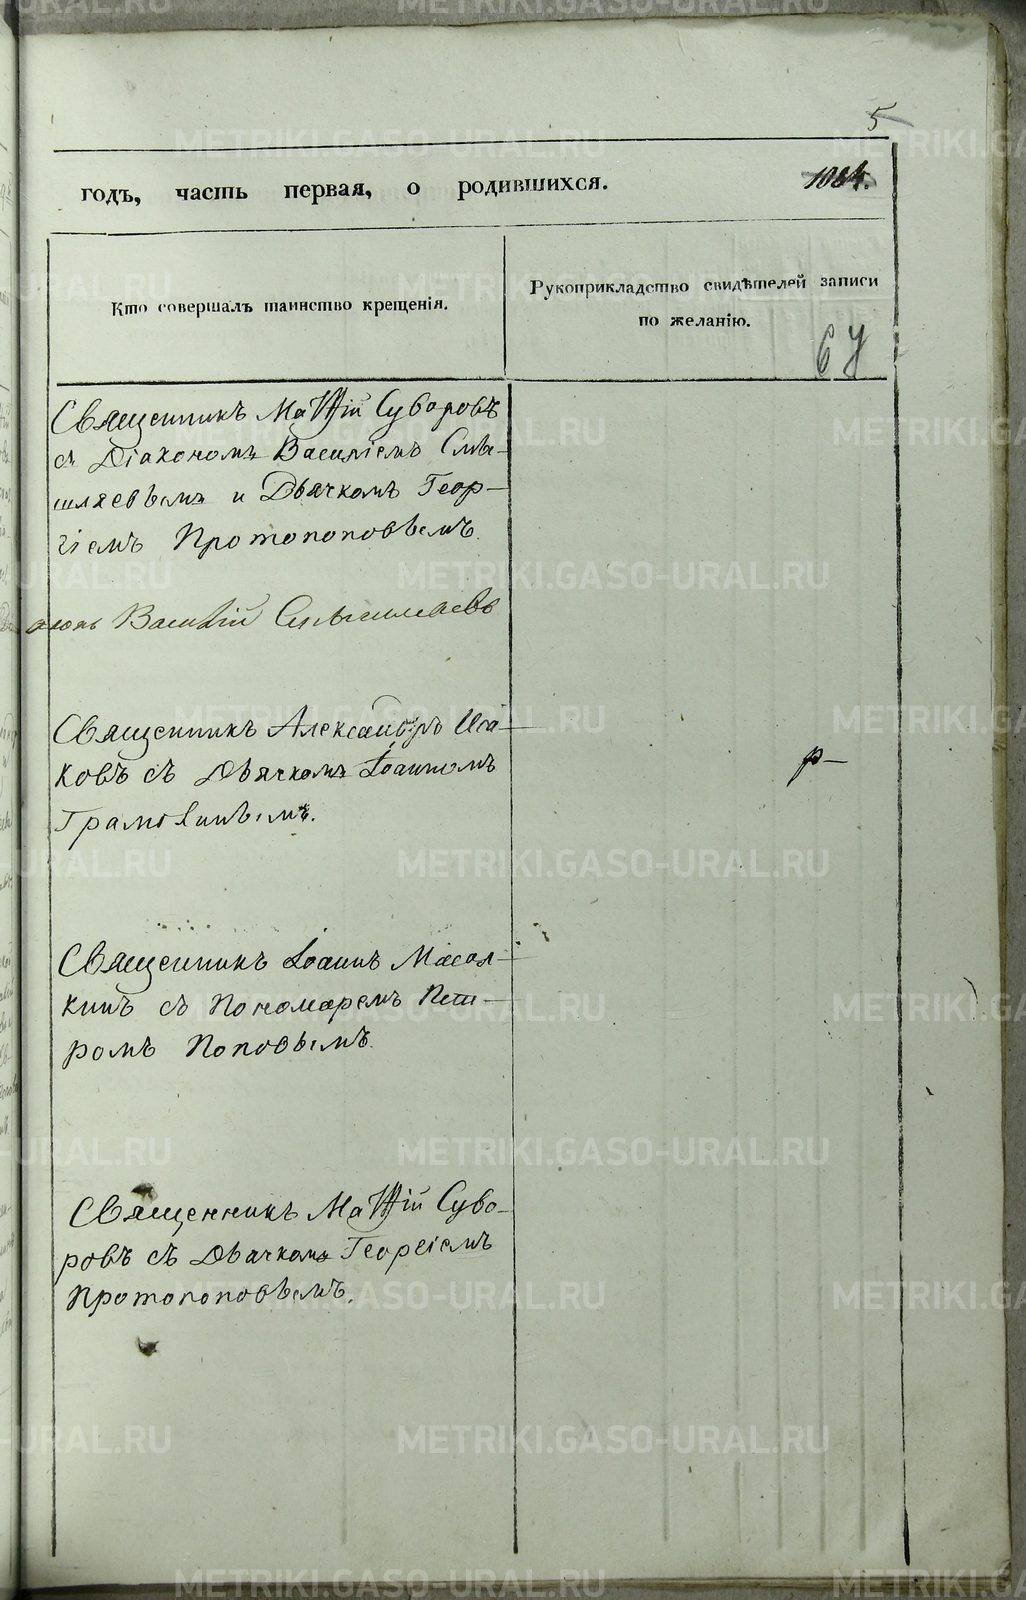 5
годъ, часть первая, о родившихся. 1084.
Кто совершалъ таинство крещенія.
Рукоприкладство свидѣтелей записи
по желанію.
67
Священникъ Матѳій Суворовъ
съ Діакономъ Василіемъ Смы-
шляевымъ и Дьячкомъ Геор-
гіемъ Протопоповымъ.
Василій Смышляевъ
Священникъ Александръ Иса-
ковъ съ Дьячкомъ Іоанномъ
р-
Священникъ Іоаннъ Масал-
кинъ съ Пономаремъ Пет-
ромъ Поповымъ.
Священникъ Матѳій Суво-
ровъ съ Дьячкомъ Георгіемъ
Протопоповымъ.
METRIKI.GASO-URAL.RU